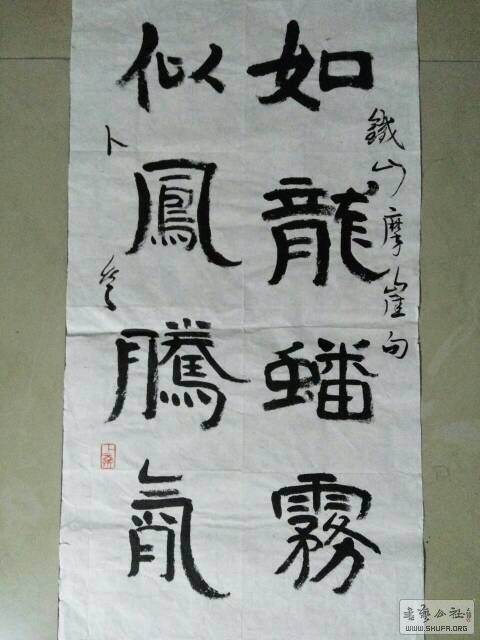 鐵山摩崖句
如龍蟠霧
似鳳騰
卜
書藝公社
WWW.SHUFA.ORG